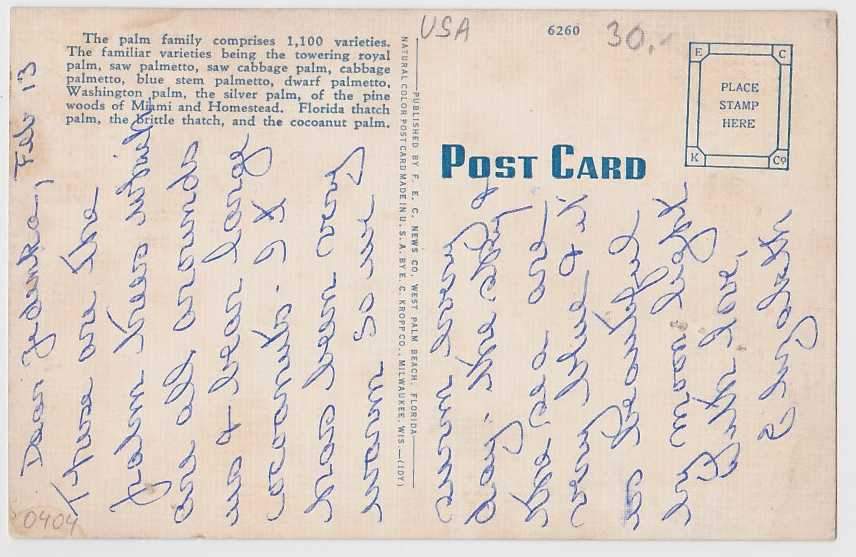 The palm family comprises 1,100 varieties.
The familiar varieties being the towering royal
palm, saw palmetto, saw cabbage palm, cabbage
palmetto, blue stem palmetto, dwarf palmetto,
Washington palm, the silver palm, of the pine
woods of Miami and Homestead. Florida thatch
palm, the brittle thatch, and the cocoanut palm.
USA
6260
30.-
E C
PLACE
STAMP
HERE
K Co
POST CARD
PUBLISHED BY F. E. C. NEWS CO. WEST PALM BEACH, FLORIDA
NATURAL COLOR POST CARD MADE IN U. S. A. BY E. C. KROPP CO., MILWAUKEE, WIS.—(IDY)
Dear Zdenka, Feb 13
These are the
palm trees which
are all around
us & bear large
cocoanuts. It
has been very
warm so we
swim every
day. The sky &
the sea are
very blue & it
is beautiful
by moon light
With love,
Elizabeth
0404